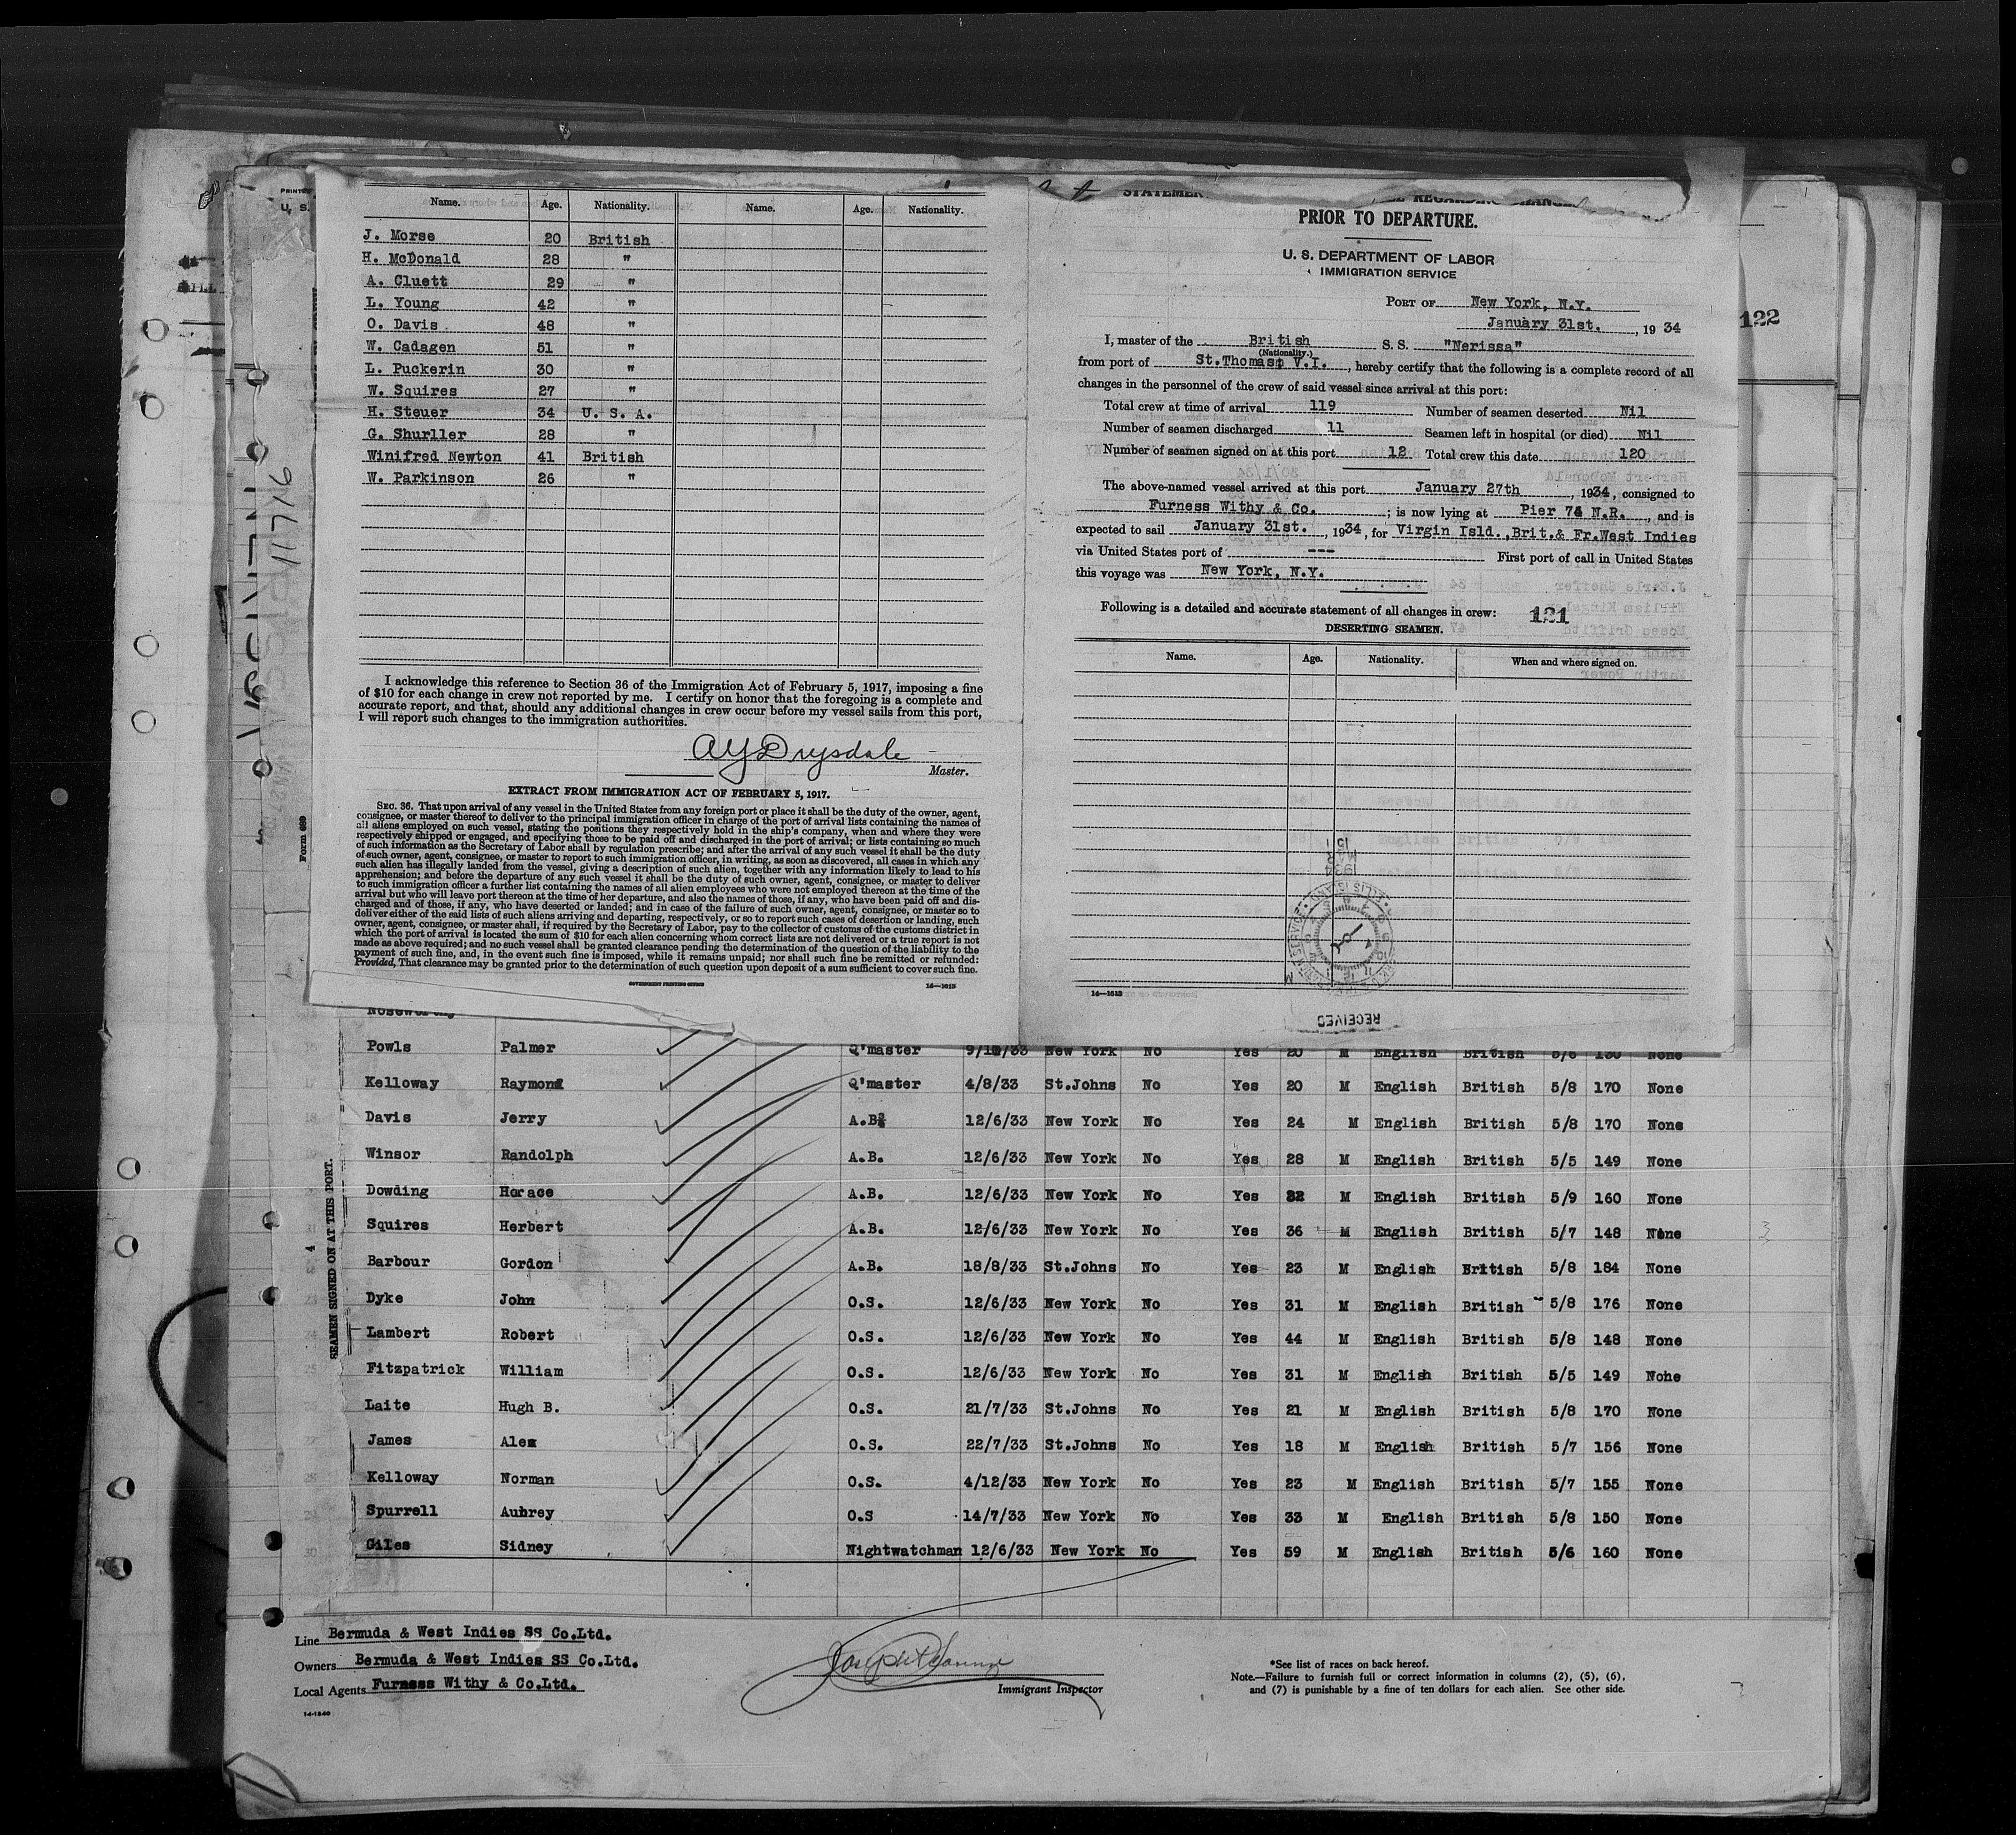 PRIOR TO DEPARTURE.
U. S. DEPARTMENT OF LABOR
IMMIGRATION SERVICE
PORT OF New York, N.Y.
January 31st. , 19 34
I, master of the British S. S. "Nerissa"
(Nationality.)
from port of St.Thomas, V.I. , hereby certify that the following is a complete record of all
changes in the personnel of the crew of said vessel since arrival at this port:
Total crew at time of arrival 119 Number of seamen deserted Nil
Number of seamen discharged 11 Seamen left in hospital (or died) Nil
Number of seamen signed on at this port 12 Total crew this date 120
The above-named vessel arrived at this port January 27th , 1934, consigned to
Furness Withy & Co. ; is now lying at Pier 74 N.R. , and is
expected to sail January 31st. , 1934, for Virgin Isld.,Brit.& Fr.West Indies
via United States port of --- First port of call in United States
this voyage was New York, N.Y.
Following is a detailed and accurate statement of all changes in crew: 121
DESERTING SEAMEN.
Name. Age. Nationality. When and where signed on.
14—1513
RECEIVED
122
SEAMEN SIGNED ON AT THIS PORT.
Form 689
Name. Age. Nationality. Name. Age. Nationality.
J. Morse 20 British
H. McDonald 28 "
A. Cluett 29 "
L. Young 42 "
O. Davis 48 "
W. Cadagen 51 "
L. Puckerin 30 "
W. Squires 27 "
H. Steuer 34 U. S. A.
G. Shurller 28 "
Winifred Newton 41 British
W. Parkinson 26 "
I acknowledge this reference to Section 36 of the Immigration Act of February 5, 1917, imposing a fine
of $10 for each change in crew not reported by me. I certify on honor that the foregoing is a complete and
accurate report, and that, should any additional changes in crew occur before my vessel sails from this port,
I will report such changes to the immigration authorities.
AYDrysdale
Master.
EXTRACT FROM IMMIGRATION ACT OF FEBRUARY 5, 1917.
SEC. 36. That upon arrival of any vessel in the United States from any foreign port or place it shall be the duty of the owner, agent,
consignee, or master thereof to deliver to the principal immigration officer in charge of the port of arrival lists containing the names of
all aliens employed on such vessel, stating the positions they respectively hold in the ship's company, when and where they were
respectively shipped or engaged, and specifying those to be paid off and discharged in the port of arrival; or lists containing so much
of such information as the Secretary of Labor shall by regulation prescribe; and after the arrival of any such vessel it shall be the duty
of such owner, agent, consignee, or master to report to such immigration officer, in writing, as soon as discovered, all cases in which any
such alien has illegally landed from the vessel, giving a description of such alien, together with any information likely to lead to his
apprehension; and before the departure of any such vessel it shall be the duty of such owner, agent, consignee, or master to deliver
to such immigration officer a further list containing the names of all alien employees who were not employed thereon at the time of the
arrival but who will leave port thereon at the time of her departure, and also the names of those, if any, who have been paid off and dis-
charged and of those, if any, who have deserted or landed; and in case of the failure of such owner, agent, consignee, or master so to
deliver either of the said lists of such aliens arriving and departing, respectively, or so to report such cases of desertion or landing, such
owner, agent, consignee, or master shall, if required by the Secretary of Labor, pay to the collector of customs of the customs district in
which the port of arrival is located the sum of $10 for each alien concerning whom correct lists are not delivered or a true report is not
made as above required; and no such vessel shall be granted clearance pending the determination of the question of the liability to the
payment of such fine, and, in the event such fine is imposed, while it remains unpaid; nor shall such fine be remitted or refunded:
Provided, That clearance may be granted prior to the determination of such question upon deposit of a sum sufficient to cover such fine.
GOVERNMENT PRINTING OFFICE 14—1513
Noseworthy
Powls Palmer Q'master New York No Yes 20 M English British 5/6 150 None
Kelloway Raymond Q'master 4/8/33 St.Johns No Yes 20 M English British 5/8 170 None
Davis Jerry A.B. 12/6/33 New York No Yes 24 M English British 5/8 170 None
Winsor Randolph A.B. 12/6/33 New York No Yes 28 M English British 5/5 149 None
Dowding Horace A.B. 12/6/33 New York No Yes 32 M English British 5/9 160 None
Squires Herbert A.B. 12/6/33 New York No Yes 36 M English British 5/7 148 None
Barbour Gordon A.B. 18/8/33 St.Johns No Yes 23 M English British 5/8 184 None
Dyke John O.S. 12/6/33 New York No Yes 31 M English British 5/8 176 None
Lambert Robert O.S. 12/6/33 New York No Yes 44 M English British 5/8 148 None
Fitzpatrick William O.S. 12/6/33 New York No Yes 31 M English British 5/5 149 None
Laite Hugh B. O.S. 21/7/33 St.Johns No Yes 21 M English British 5/8 170 None
James Alex O.S. 22/7/33 St.Johns No Yes 18 M English British 5/7 156 None
Kelloway Norman O.S. 4/12/33 New York No Yes 23 M English British 5/7 155 None
Spurrell Aubrey O.S 14/7/33 New York No Yes 33 M English British 5/8 150 None
Giles Sidney Nightwatchman 12/6/33 New York No Yes 59 M English British 5/6 160 None
Line Bermuda & West Indies SS Co.Ltd.
Owners Bermuda & West Indies SS Co.Ltd.
Local Agents Furness Withy & Co.Ltd.
14-1240
Immigrant Inspector
*See list of races on back hereof.
Note.—Failure to furnish full or correct information in columns (2), (5), (6),
and (7) is punishable by a fine of ten dollars for each alien. See other side.